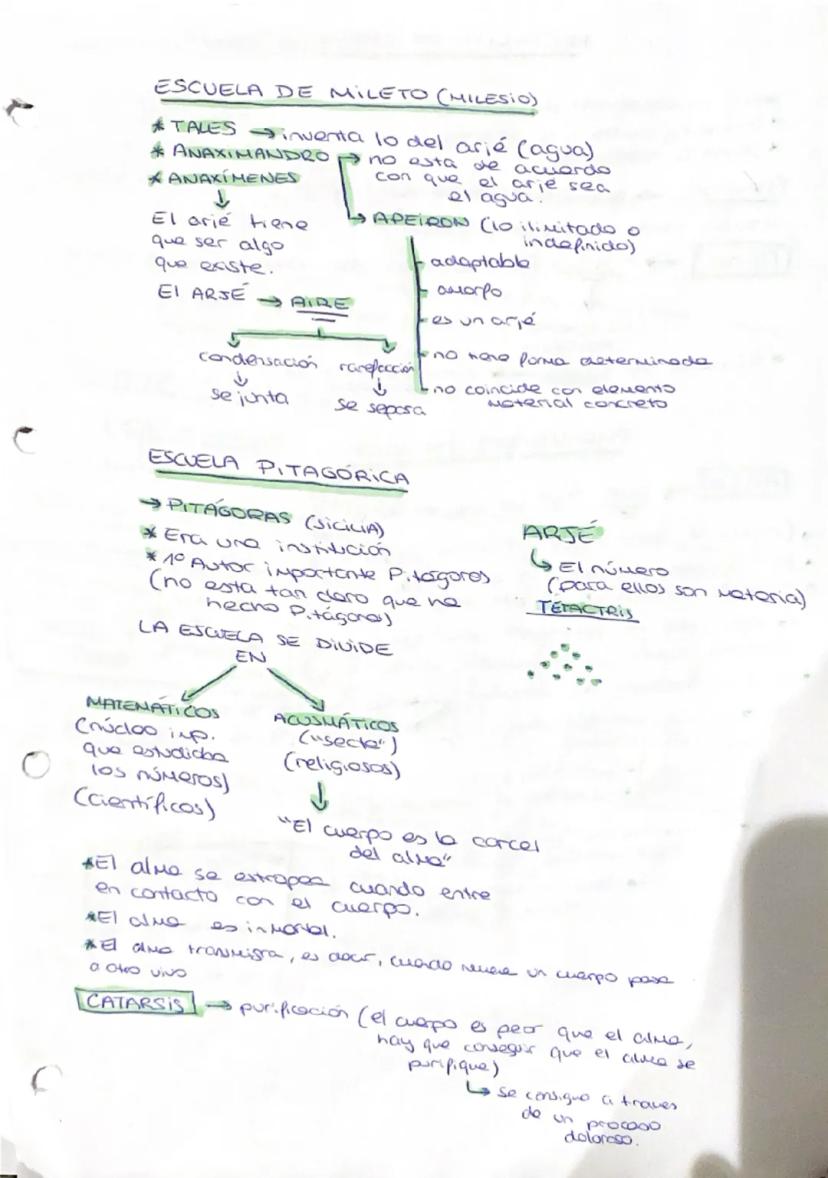 ESCUELA DE MILETO (MILESIO)
* TALES → inventa lo del arjé (agua)
* ANAXIMANDRO → no esta de acuerdo
con que el arjé sea
el agua.
* ANAXÍMENES
↓
El arjé tiene
que ser algo
que existe.
El ARJÉ → AIRE
condensación rarefacción
↓ ↓
se junta se separa
↳ APEIRON (lo ilimitado o
indefinido)
- adaptable
- amorfo
- es un arjé
- no tiene forma determinada
- no coincide con elemento
material concreto
ESCUELA PITAGÓRICA
→ PITÁGORAS (SICILIA)
* Era una institución
* 1º Autor importante Pitágoras
(no esta tan claro que ha
hecho Pitágoras)
LA ESCUELA SE DIVIDE
EN
MATEMÁTICOS
(núcleo imp.
que estudiaba
los números)
(científicos)
ACUSMÁTICOS
("secta")
(religiosos)
↓
"El cuerpo es la carcel
del alma"
ARJÉ
↳ El número
(para ellos son materia)
TETRACTRIS
* El alma se estropea cuando entre
en contacto con el cuerpo.
* El alma es inmortal.
* El alma transmigra, es decir, cuando muere un cuerpo pasa
a otro vivo
CATARSIS → purificación (el cuerpo es peor que el alma,
hay que conseguir que el alma se
purifique)
↳ se consigue a traves
de un proceso
doloroso.